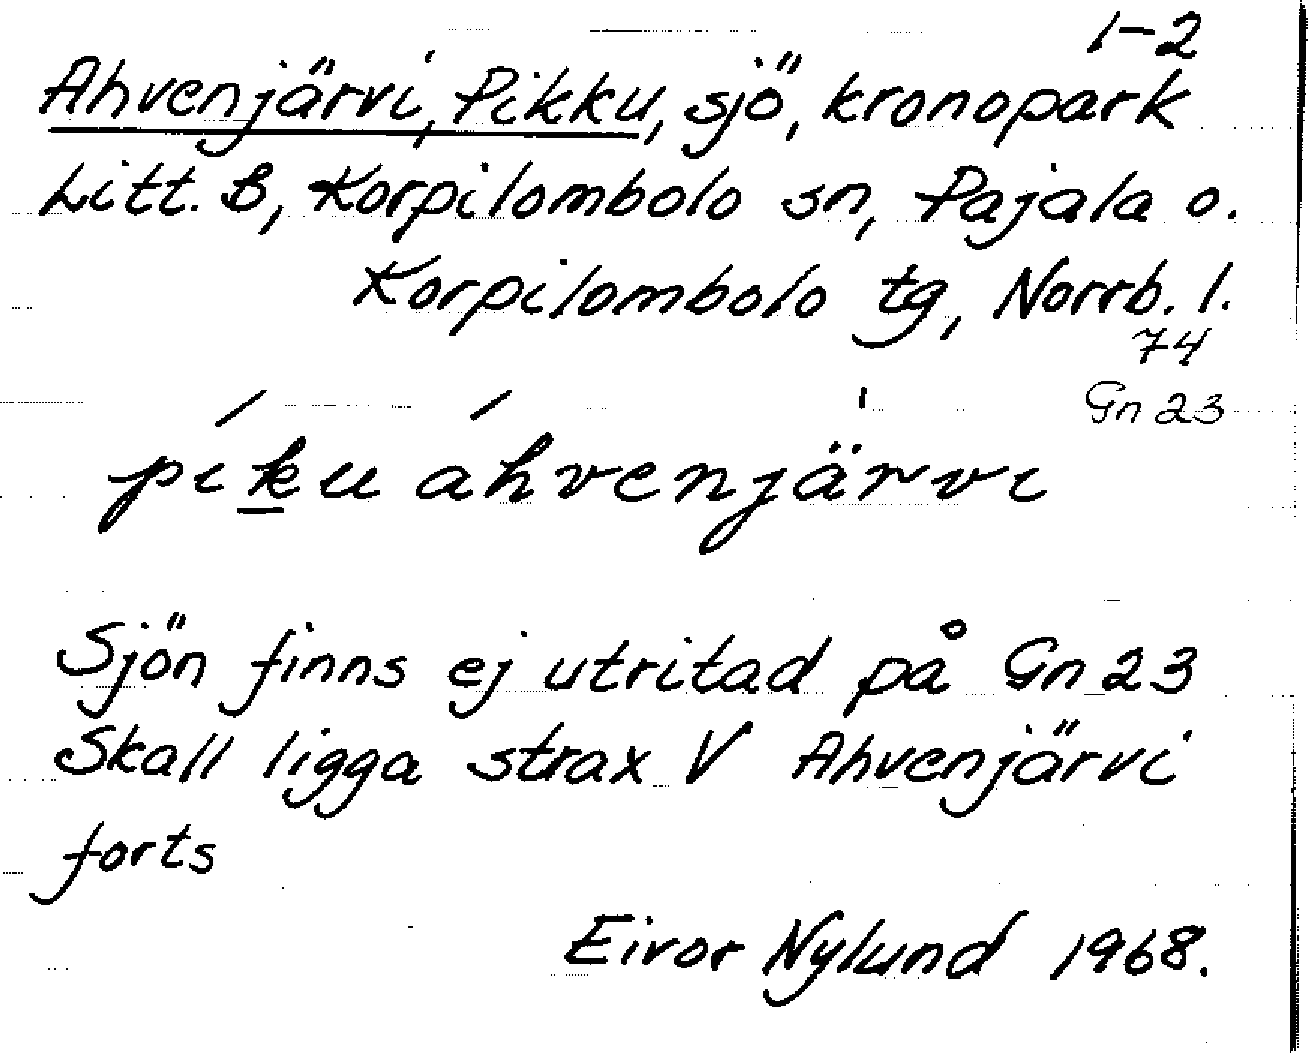 1-2
Ahvenjärvi, Pikku, sjö, kronopark
Litt. B, Korpilombolo sn, Pajala o.
Korpilombolo tg, Norrb. l.
74
Gn 23
píḵu áhvenjä̀rvi
Sjön finns ej utritad på Gn 23
Skall ligga strax V Ahvenjärvi
forts
Eivor Nylund 1968.